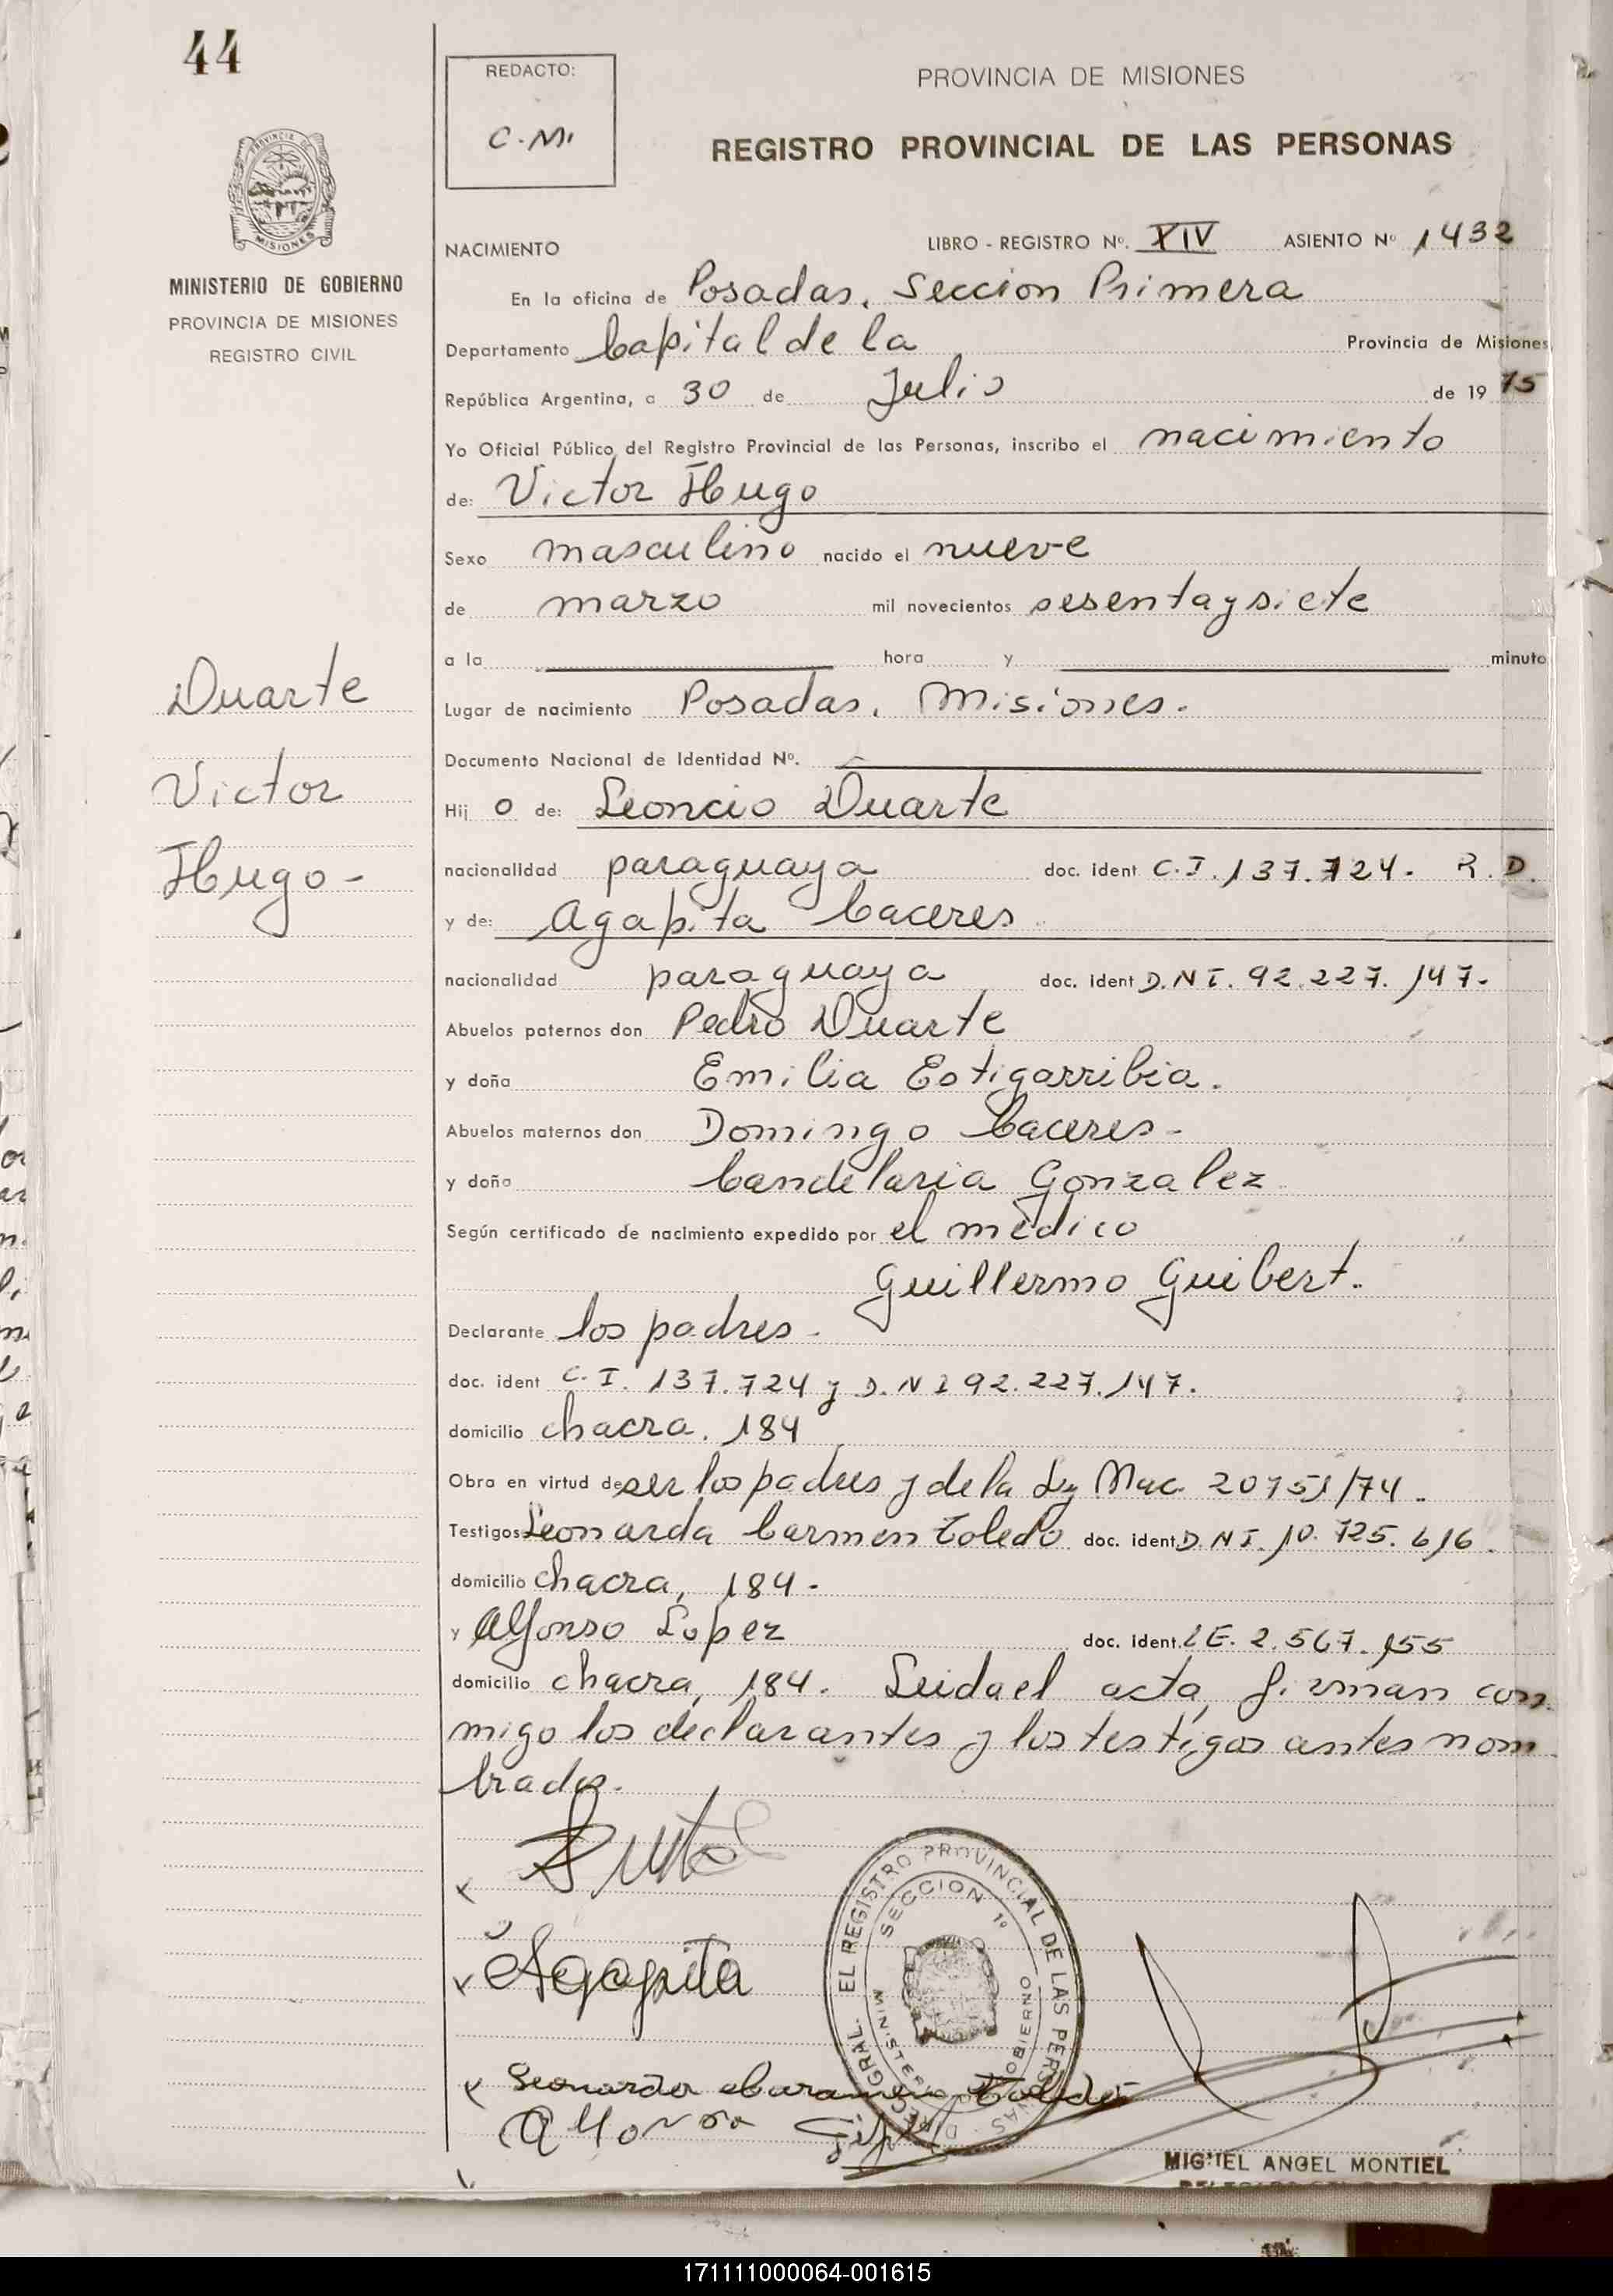 44
REDACTO:
C.M.
PROVINCIA DE MISIONES
REGISTRO PROVINCIAL DE LAS PERSONAS
MISIONES
MINISTERIO DE GOBIERNO
PROVINCIA DE MISIONES
REGISTRO CIVIL
NACIMIENTO
LIBRO - REGISTRO Nº. XIV ASIENTO Nº 1432
En la oficina de Posadas, Seccion Primera
Departamento Capital de la Provincia de Misiones
República Argentina, a 30 de Julio de 1975
Yo Oficial Público del Registro Provincial de las Personas, inscribo el nacimiento
de: Victor Hugo
Sexo masculino nacido el nueve
de marzo mil novecientos sesentaysiete
a la hora y minuto
Duarte
Victor
Hugo-
Lugar de nacimiento Posadas, Misiones.
Documento Nacional de Identidad Nº.
Hij o de: Leoncio Duarte
nacionalidad paraguaya doc. ident C.I. 137.724. R.D.
y de: Agapita Caceres
nacionalidad paraguaya doc. ident D.N.I. 92.227.147.
Abuelos paternos don Pedro Duarte
y doña Emilia Estigarribia.
Abuelos maternos don Domingo Caceres-
y doña Candelaria Gonzalez
Según certificado de nacimiento expedido por el médico
Guillermo Guibert.
Declarante los padres-
doc. ident C.I. 137.724 y D.N.I 92.227.147.
domicilio chacra. 184
Obra en virtud de ser los padres y de la Ley Nac. 20751/74.
Testigos Leonarda Carmen Toledo doc. ident. D.N.I. 10.725.616.
domicilio chacra, 184.
y Alfonso Lopez doc. ident. L.E. 2.567.155
domicilio chacra, 184. Leida el acta, firman con
migo los declarantes y los testigos antes nom
brados.
EL REGISTRO PROVINCIAL DE LAS PERSONAS
SECCION 1º
MINISTERIO GOBIERNO
Agapita
Alfonso
MIGUEL ANGEL MONTIEL
171111000064-001615